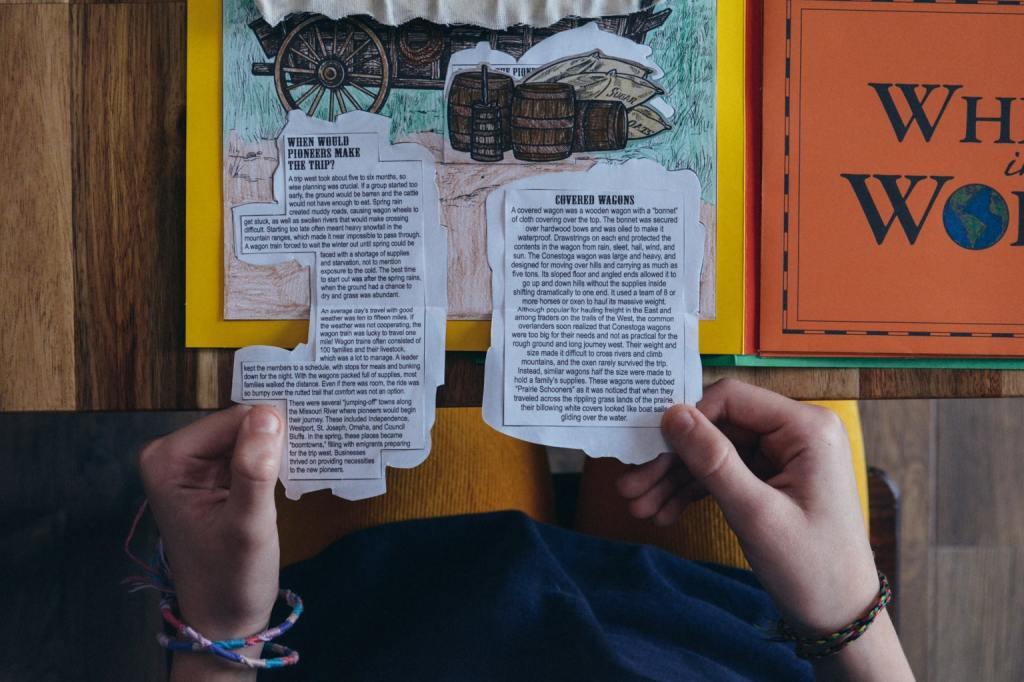 THE PIONE
SUGAR
OATS
WHEN WOULD
PIONEERS MAKE
THE TRIP?
A trip west took about five to six months, so
wise planning was crucial. If a group started too
early, the ground would be barren and the cattle
would not have enough to eat. Spring rain
created muddy roads, causing wagon wheels to
get stuck, as well as swollen rivers that would make crossing
difficult. Starting too late often meant heavy snowfall in the
mountain ranges, which made it near impossible to pass through.
A wagon train forced to wait the winter out until spring could be
faced with a shortage of supplies
and starvation, not to mention
exposure to the cold. The best time
to start out was after the spring rains,
when the ground had a chance to
dry and grass was abundant.
An average day's travel with good
weather was ten to fifteen miles. If
the weather was not cooperating, the
wagon train was lucky to travel one
mile! Wagon trains often consisted of
100 families and their livestock,
which was a lot to manage. A leader
kept the members to a schedule, with stops for meals and bunking
down for the night. With the wagons packed full of supplies, most
families walked the distance. Even if there was room, the ride was
so bumpy over the rutted trail that comfort was not an option.
There were several "jumping-off" towns along
the Missouri River where pioneers would begin
their journey. These included Independence,
Westport, St. Joseph, Omaha, and Council
Bluffs. In the spring, these places became
"boomtowns," filling with emigrants preparing
for the trip west. Businesses
thrived on providing necessities
to the new pioneers.
COVERED WAGONS
A covered wagon was a wooden wagon with a "bonnet"
of cloth covering over the top. The bonnet was secured
over hardwood bows and was oiled to make it
waterproof. Drawstrings on each end protected the
contents in the wagon from rain, sleet, hail, wind, and
sun. The Conestoga wagon was large and heavy, and
designed for moving over hills and carrying as much as
five tons. Its sloped floor and angled ends allowed it to
go up and down hills without the supplies inside
shifting dramatically to one end. It used a team of 8 or
more horses or oxen to haul its massive weight.
Although popular for hauling freight in the East and
among traders on the trails of the West, the common
overlanders soon realized that Conestoga wagons
were too big for their needs and not as practical for the
rough ground and long journey west. Their weight and
size made it difficult to cross rivers and climb
mountains, and the oxen rarely survived the trip.
Instead, similar wagons half the size were made to
hold a family's supplies. These wagons were dubbed
"Prairie Schooners" as it was noticed that when they
traveled across the rippling grass lands of the prairie,
their billowing white covers looked like boat sails
gliding over the water.
WHE
in
WO